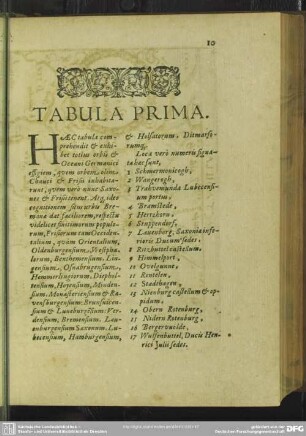 10
TABULA PRIMA.
HÆC tabula com-
prehendit & exhi-
bet totius orbis &
Oceani Germanici
effigiem, quem orbem, olim,
Chauci & Frisii inhabita-
runt, quem verò nunc Saxo-
nes & Frisii tenent. Atq, ideo
cognitionem situs urbis Bre-
monæ dat faciliorem, respectu
videlicet finitimorum populo-
rum, Frisiorum tum Occiden-
talium, quàm Orientalium,
Oldenburgensium, Westpha-
lorum, Benthemensium, Lin-
gensium, Osnabrugensium,
Hemmelingorum, Diephol-
tensium, Hoyensium, Minden-
sium, Monasteriensium & Ra-
vensburgensium: Brunsvicen-
sium & Luneburgensium: Ver-
densium, Bremensium, Lauen-
burgensium Saxonum, Lu-
becensium, Hamburgensium,
& Holsatorum, Ditmarso-
rumq;
Loca verò numeris signa-
ta hæc sunt,
1 Schmermonicogh,
2 Wangerogh,
3 Travemunda Lubecensi-
um portus,
4 Bramstede,
5 Hertzhorn,
6
7 Lauenborg, Saxoniæ infe-
rioris Ducum sedes,
8
9 Himmelport,
10 Ovelgunne,
11 Rentelen,
12 Stadthagen,
13 Nienburg castellum & op-
pidum,
14 Obern Rotenburg,
15 Nidern Rotenburg,
16
17 Wulffenbuttel, Ducis Hen-
rici Julii sedes.